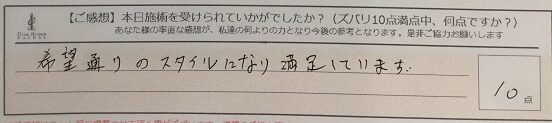 【ご感想】本日施術を受けられていかがでしたか？（ズバリ10点満点中、何点ですか？）
あなた様の率直な感想が、私達の何よりの力となり今後の参考となります。是非ご協力お願いします
希望通りのスタイルになり満足しています。
10点